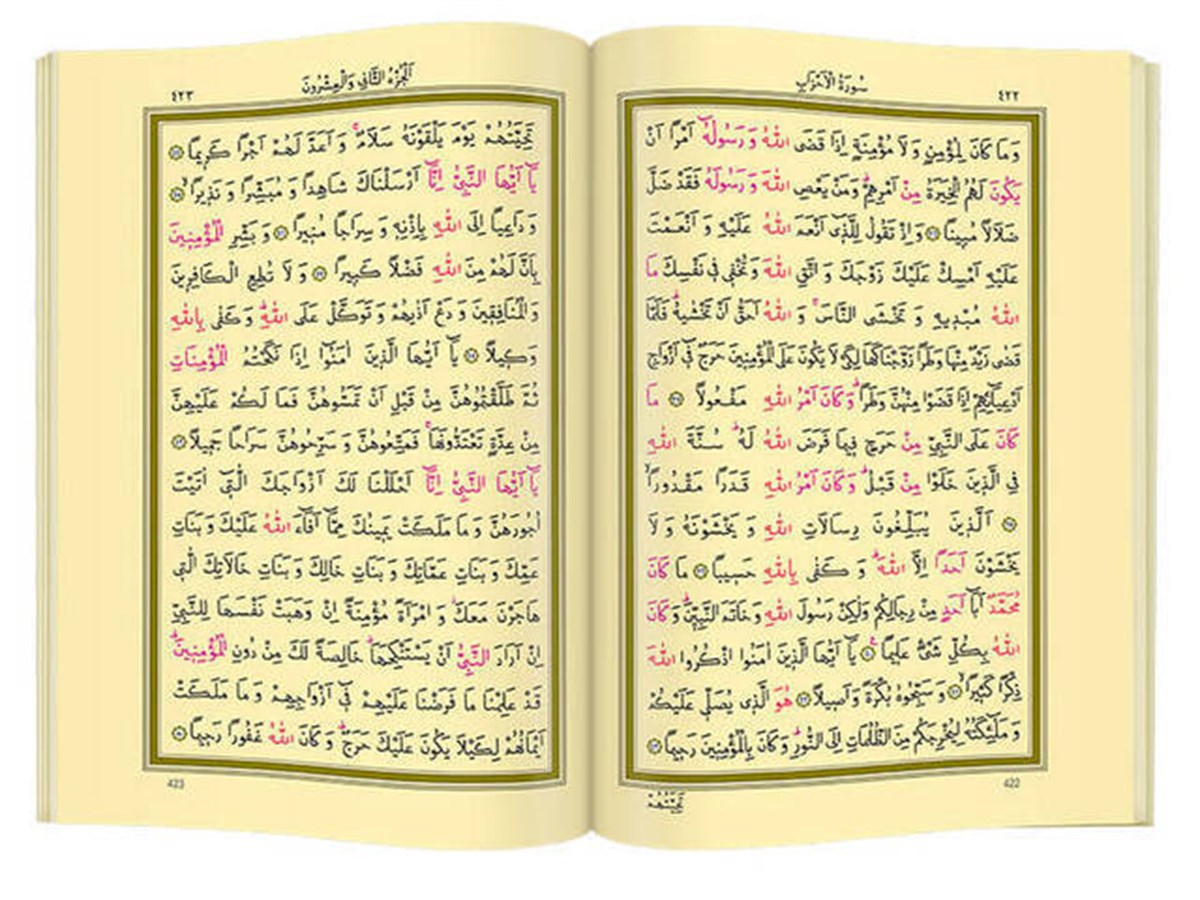 سُورَةُ الْاَحْزَابِ ٤٢٢
وَمَا كَانَ لِمُؤْمِنٍ وَلَا مُؤْمِنَةٍ اِذَا قَضَى اللّٰهُ وَرَسُولُهُٓ اَمْرًا اَنْ
يَكُونَ لَهُمُ الْخِيَرَةُ مِنْ اَمْرِهِمْۜ وَمَنْ يَعْصِ اللّٰهَ وَرَسُولَهُ فَقَدْ ضَلَّ
ضَلَالًا مُبِينًا ﴿٣٦﴾ وَاِذْ تَقُولُ لِلَّذِٓي اَنْعَمَ اللّٰهُ عَلَيْهِ وَاَنْعَمْتَ
عَلَيْهِ اَمْسِكْ عَلَيْكَ زَوْجَكَ وَاتَّقِ اللّٰهَ وَتُخْفِي فِي نَفْسِكَ مَا
اللّٰهُ مُبْدِيهِ وَتَخْشَى النَّاسَۚ وَاللّٰهُ اَحَقُّ اَنْ تَخْشٰيهُۜ فَلَمَّا
قَضٰى زَيْدٌ مِنْهَا وَطَرًا زَوَّجْنَاكَهَا لِكَيْ لَا يَكُونَ عَلَى الْمُؤْمِنِينَ حَرَجٌ فِٓي اَزْوَاجِ
اَدْعِيَٓائِهِمْ اِذَا قَضَوْا مِنْهُنَّ وَطَرًاۜ وَكَانَ اَمْرُ اللّٰهِ مَفْعُولًا ﴿٣٧﴾ مَا
كَانَ عَلَى النَّبِيِّ مِنْ حَرَجٍ فِيمَا فَرَضَ اللّٰهُ لَهُۜ سُنَّةَ اللّٰهِ
فِي الَّذِينَ خَلَوْا مِنْ قَبْلُۜ وَكَانَ اَمْرُ اللّٰهِ قَدَرًا مَقْدُورًاۙ
﴿٣٨﴾ اَلَّذِينَ يُبَلِّغُونَ رِسَالَاتِ اللّٰهِ وَيَخْشَوْنَهُ وَلَا
يَخْشَوْنَ اَحَدًا اِلَّا اللّٰهَۜ وَكَفٰى بِاللّٰهِ حَسِيبًا ﴿٣٩﴾ مَا كَانَ
مُحَمَّدٌ اَبَٓا اَحَدٍ مِنْ رِجَالِكُمْ وَلٰكِنْ رَسُولَ اللّٰهِ وَخَاتَمَ النَّبِيّ۪نَۜ وَكَانَ
اللّٰهُ بِكُلِّ شَيْءٍ عَلِيمًا ﴿٤٠﴾ يَٓا اَيُّهَا الَّذِينَ اٰمَنُوا اذْكُرُوا اللّٰهَ
ذِكْرًا كَثِيرًا ﴿٤١﴾ وَسَبِّحُوهُ بُكْرَةً وَاَصِيلًا ﴿٤٢﴾ هُوَ الَّذِي يُصَلِّي عَلَيْكُمْ
وَمَلٰٓئِكَتُهُ لِيُخْرِجَكُمْ مِنَ الظُّلُمَاتِ اِلَى النُّورِۜ وَكَانَ بِالْمُؤْمِنِينَ رَحِيمًا ﴿٤٣﴾
422
تَحِيَّتُهُمْ
اَلْجُزْءُ الثَّانِي وَالْعِشْرُونَ ٤٢٣
تَحِيَّتُهُمْ يَوْمَ يَلْقَوْنَهُ سَلَامٌۚ وَاَعَدَّ لَهُمْ اَجْرًا كَرِيمًا ﴿٤٤﴾
يَٓا اَيُّهَا النَّبِيُّ اِنَّٓا اَرْسَلْنَاكَ شَاهِدًا وَمُبَشِّرًا وَنَذِيرًاۙ ﴿٤٥﴾
وَدَاعِيًا اِلَى اللّٰهِ بِاِذْنِهِ وَسِرَاجًا مُنِيرًا ﴿٤٦﴾ وَبَشِّرِ الْمُؤْمِنِينَ
بِاَنَّ لَهُمْ مِنَ اللّٰهِ فَضْلًا كَبِيرًا ﴿٤٧﴾ وَلَا تُطِعِ الْكَافِرِينَ
وَالْمُنَافِقِينَ وَدَعْ اَذٰيهُمْ وَتَوَكَّلْ عَلَى اللّٰهِۜ وَكَفٰى بِاللّٰهِ
وَكِيلًا ﴿٤٨﴾ يَٓا اَيُّهَا الَّذِينَ اٰمَنُٓوا اِذَا نَكَحْتُمُ الْمُؤْمِنَاتِ
ثُمَّ طَلَّقْتُمُوهُنَّ مِنْ قَبْلِ اَنْ تَمَسُّوهُنَّ فَمَا لَكُمْ عَلَيْهِنَّ
مِنْ عِدَّةٍ تَعْتَدُّونَهَاۚ فَمَتِّعُوهُنَّ وَسَرِّحُوهُنَّ سَرَاحًا جَمِيلًا ﴿٤٩﴾
يَٓا اَيُّهَا النَّبِيُّ اِنَّٓا اَحْلَلْنَا لَكَ اَزْوَاجَكَ الّٰتِٓي اٰتَيْتَ
اُجُورَهُنَّ وَمَا مَلَكَتْ يَمِينُكَ مِمَّٓا اَفَٓاءَ اللّٰهُ عَلَيْكَ وَبَنَاتِ
عَمِّكَ وَبَنَاتِ عَمَّاتِكَ وَبَنَاتِ خَالِكَ وَبَنَاتِ خَالَاتِكَ الّٰتِي
هَاجَرْنَ مَعَكَۘ وَامْرَاَةً مُؤْمِنَةً اِنْ وَهَبَتْ نَفْسَهَا لِلنَّبِيِّ
اِنْ اَرَادَ النَّبِيُّ اَنْ يَسْتَنْكِحَهَاۗ خَالِصَةً لَكَ مِنْ دُونِ الْمُؤْمِنِينَۜ
قَدْ عَلِمْنَا مَا فَرَضْنَا عَلَيْهِمْ فِٓي اَزْوَاجِهِمْ وَمَا مَلَكَتْ
اَيْمَانُهُمْ لِكَيْلَا يَكُونَ عَلَيْكَ حَرَجٌۜ وَكَانَ اللّٰهُ غَفُورًا رَحِيمًا ﴿٥٠﴾
423